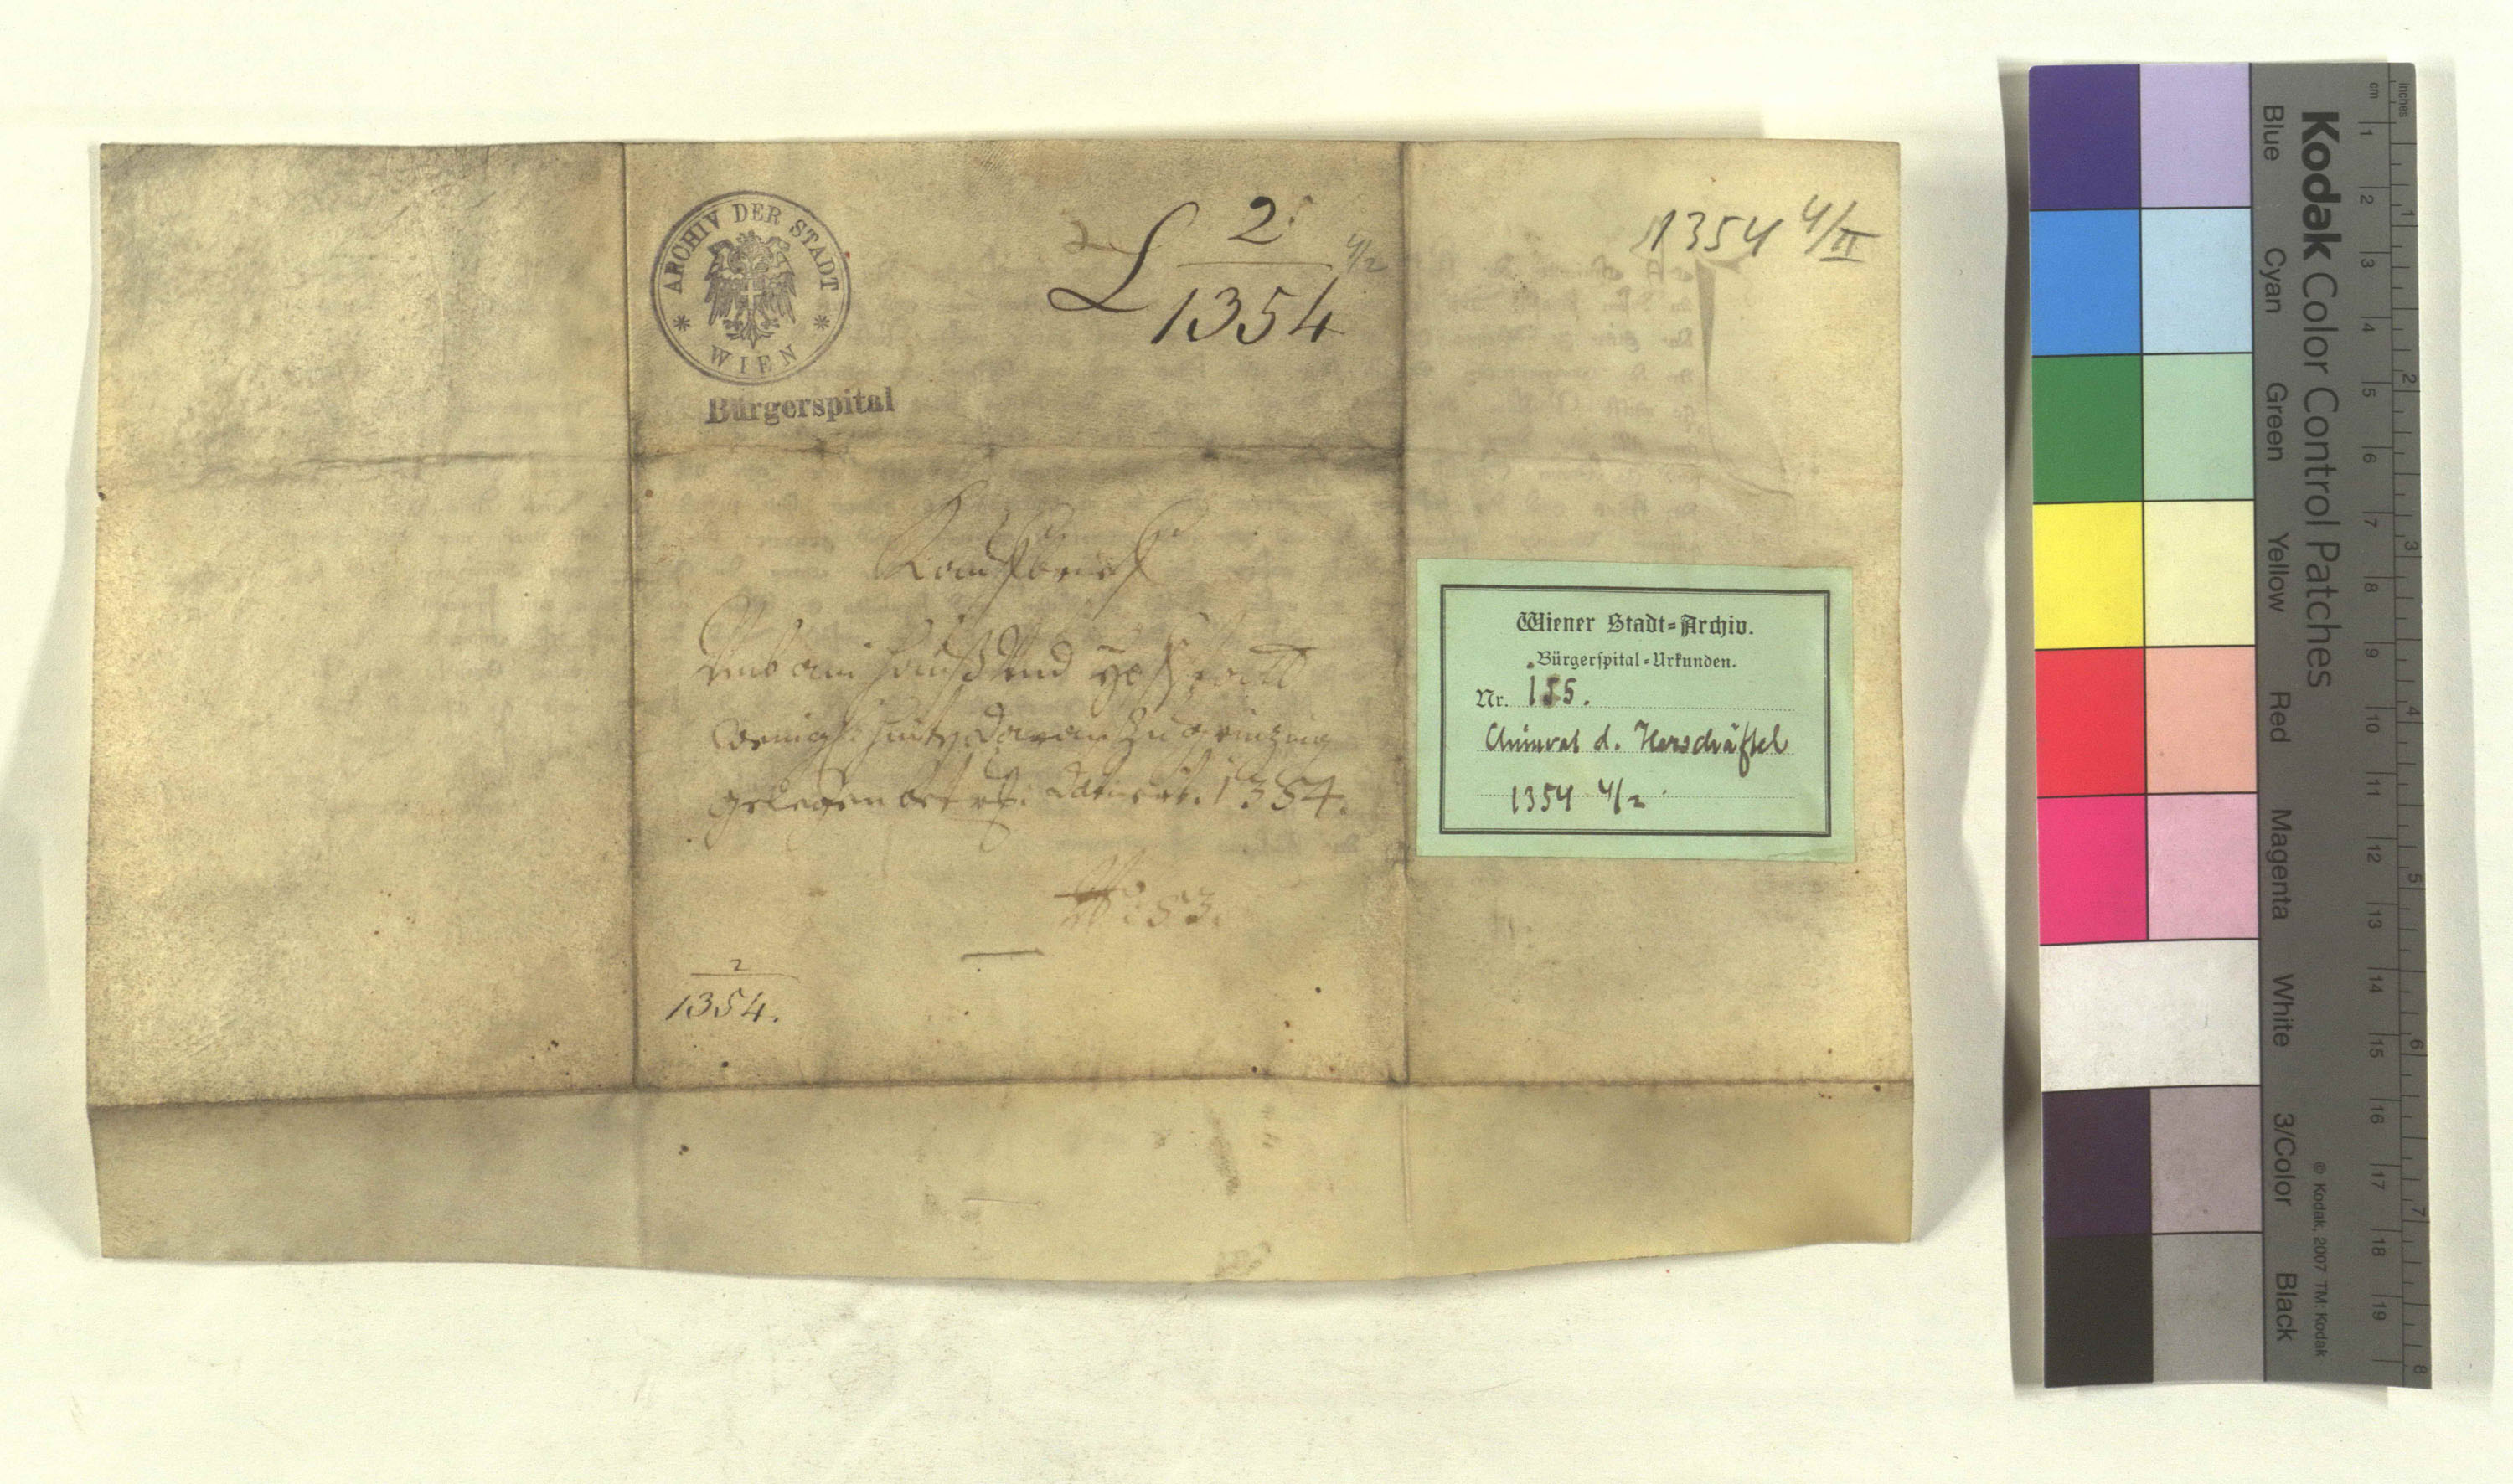 ARCHIV DER STADT
WIEN
Bürgerspital
2
L 2 4/2
1354
1354 4/II
Kauffbrieff
Umb ain hauß und
daran zu grinzing
gelegen 1354.
No 153.
2
1354.
Wiener Stadt-Archiv.
Bürgerspital-Urkunden.
Nr. 155.
Chunrat d. Harschäftel
1354 4/2
Kodak Color Control Patches
Blue Cyan Green Yellow Red Magenta White 3/Color Black
© Kodak, 2007 TM: Kodak
cm 1 2 3 4 5 6 7 8 9 10 11 12 13 14 15 16 17 18 19
inches 1 2 3 4 5 6 7 8